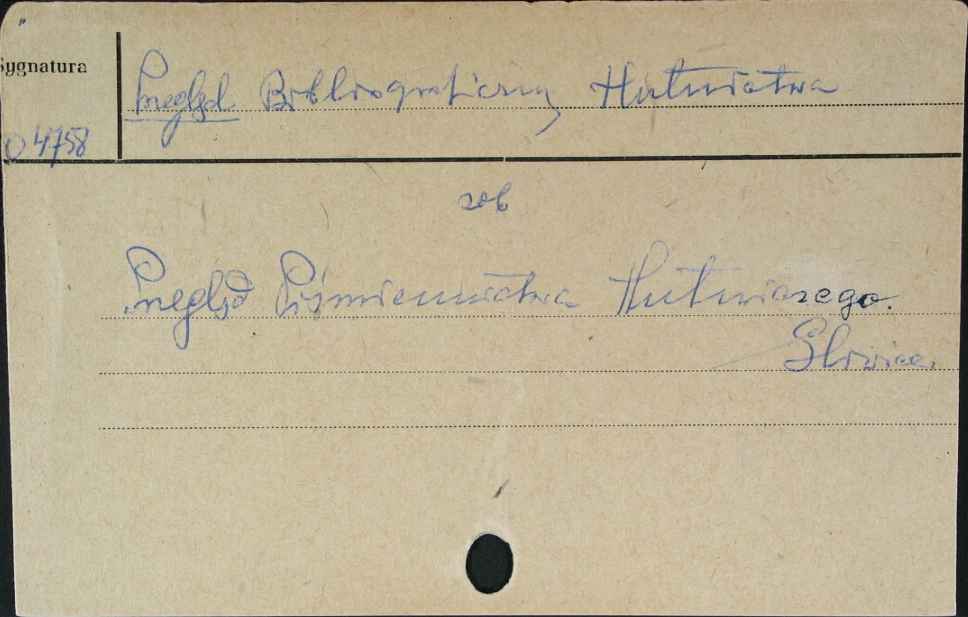 Sygnatura
Przegląd Bibliograficzny Hutnictwa
O 4758
zob
Przegląd Piśmiennictwa Hutniczego.
Gliwice.